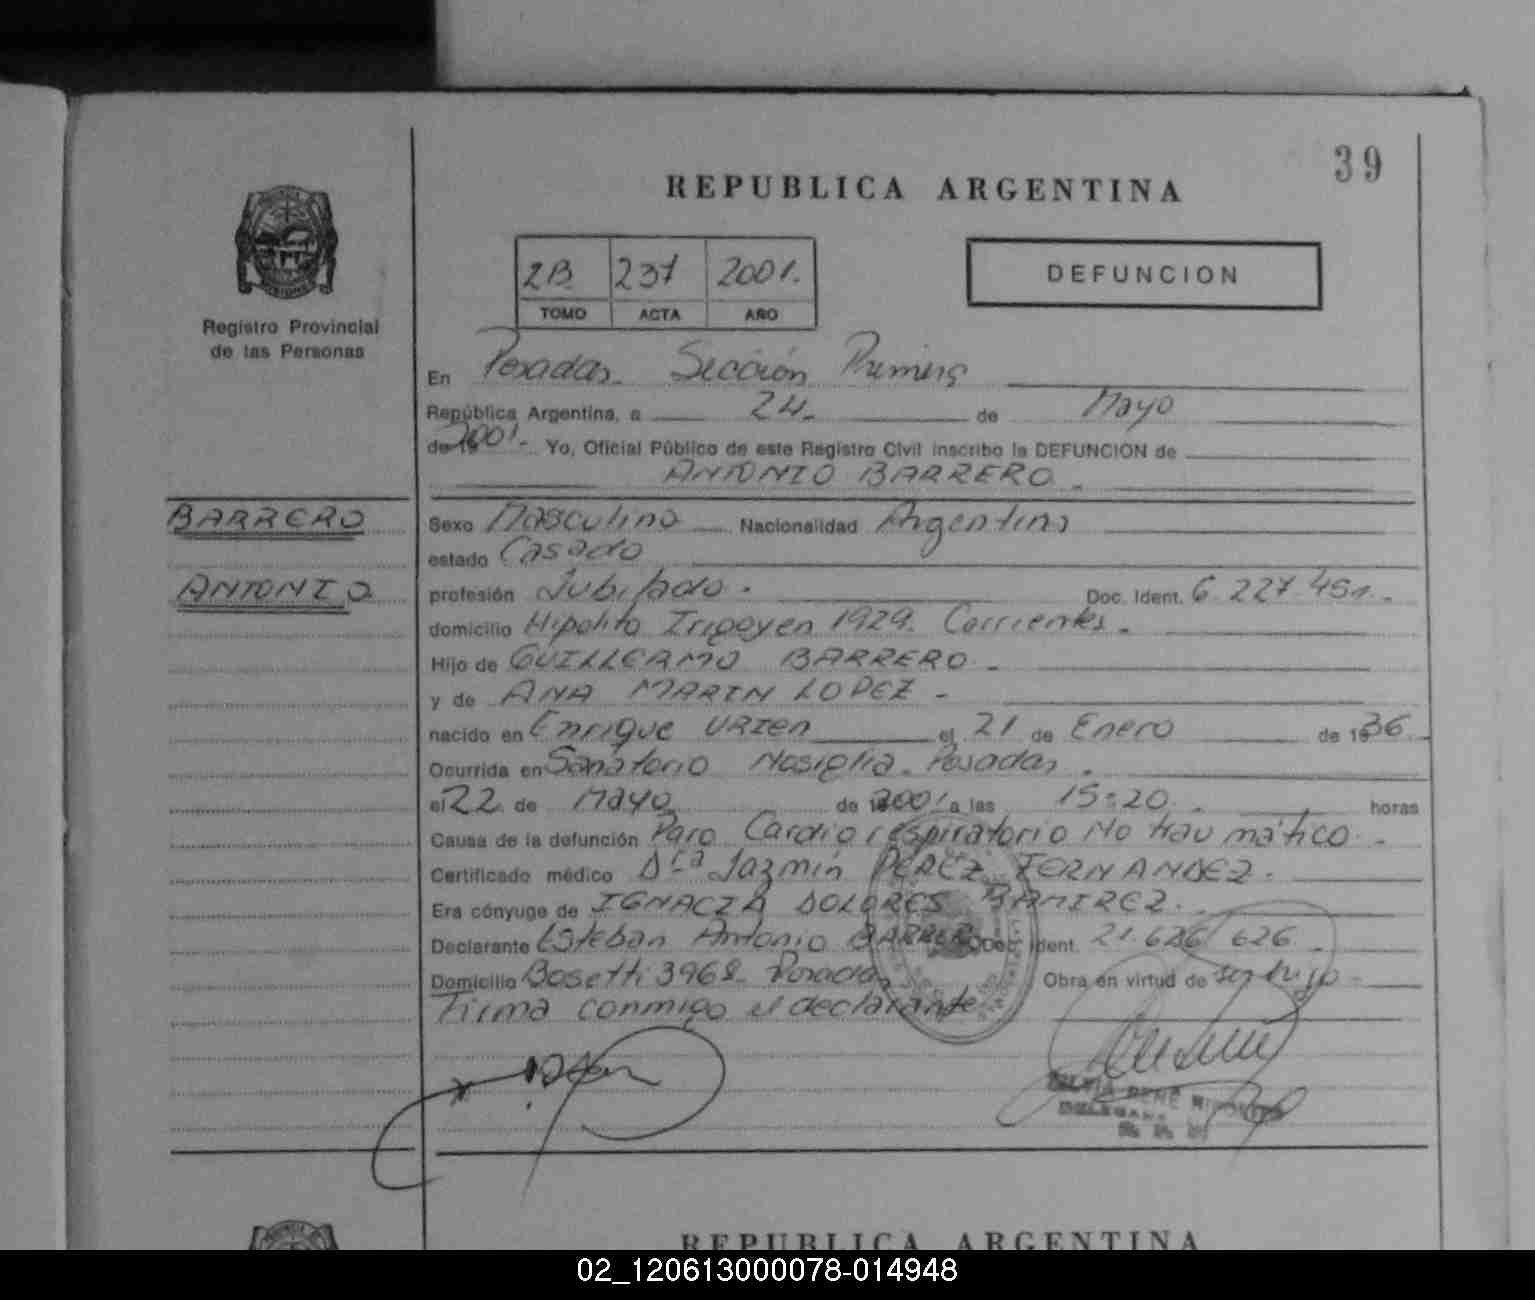 39
REPUBLICA ARGENTINA
2B 237 2001.
TOMO ACTA AÑO
DEFUNCION
Registro Provincial
de las Personas
En Posadas. Sección Primera
República Argentina, a 24. de Mayo
de 2001.- Yo, Oficial Público de este Registro Civil inscribo la DEFUNCION de
ANTONIO BARRERO.
BARRERO
ANTONIO
Sexo Masculino Nacionalidad Argentina
estado Casado
profesión Jubilado. Doc. Ident. 6.227.451.-
domicilio Hipolito Irigoyen 1929. Corrientes.
Hijo de GUILLERMO BARRERO.
y de ANA MARIN LOPEZ.
nacido en Enrique URIEN el 21 de Enero de 1936.
Ocurrida en Sanatorio Nosiglia. Posadas.
el 22 de Mayo de 2001 a las 15:20. horas
Causa de la defunción Paro Cardiorespiratorio No traumático.
Certificado médico Dra Jazmín PEREZ FERNANDEZ.
Era cónyuge de IGNACIA DOLORES RAMIREZ.
Declarante Esteban Antonio BARRERO Doc. Ident. 21.626.626.
Domicilio Bosetti 3968. Posadas Obra en virtud de ser hijo.
Firma conmigo el declarante
RENE
REPUBLICA ARGENTINA
02_120613000078-014948